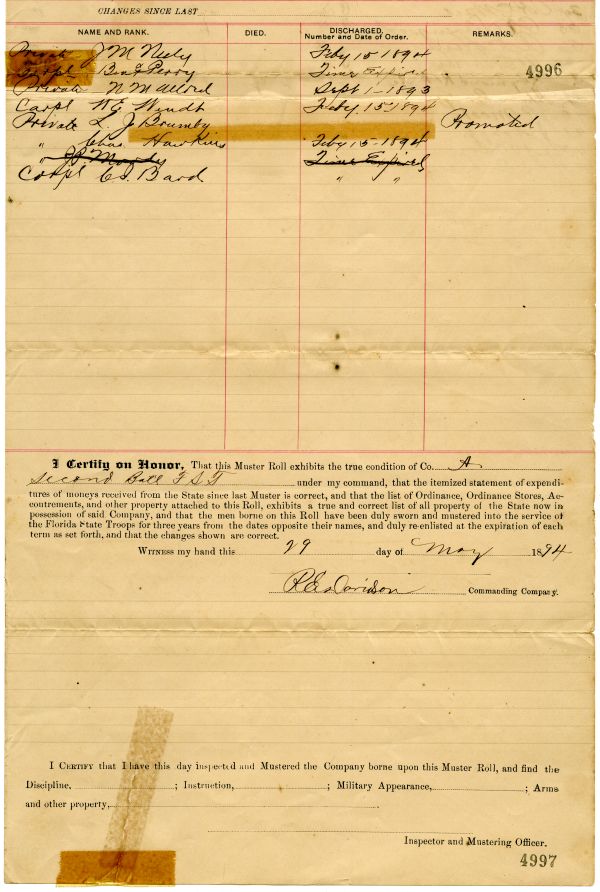 CHANGES SINCE LAST
NAME AND RANK. DIED. DISCHARGED. Number and Date of Order. REMARKS.
Private J M Neely Feby 15 - 1894
Corpl Benj Perry Time Expired 4996
Private N M Allord Sept 1 - 1893
Corpl W E Windt Feby 15 - 1894
Private L. J Brumby Promoted
" Chas Hawkins Feby 15 - 1894
" J P Moody Time Expired
Corpl C. S. Bard " "
I Certify on Honor, That this Muster Roll exhibits the true condition of Co. A
Second Batt F S T under my command, that the itemized statement of expendi-
tures of moneys received from the State since last Muster is correct, and that the list of Ordinance, Ordinance Stores, Ac-
coutrements, and other property attached to this Roll, exhibits a true and correct list of all property of the State now in
possession of said Company, and that the men borne on this Roll have been duly sworn and mustered into the service of
the Florida State Troops for three years from the dates opposite their names, and duly re-enlisted at the expiration of each
term as set forth, and that the changes shown are correct.
WITNESS my hand this 29 day of May 1894
R E Davidson Commanding Company.
I CERTIFY that I have this day inspected and Mustered the Company borne upon this Muster Roll, and find the
Discipline, ; Instruction, ; Military Appearance, ; Arms
and other property,
Inspector and Mustering Officer.
4997